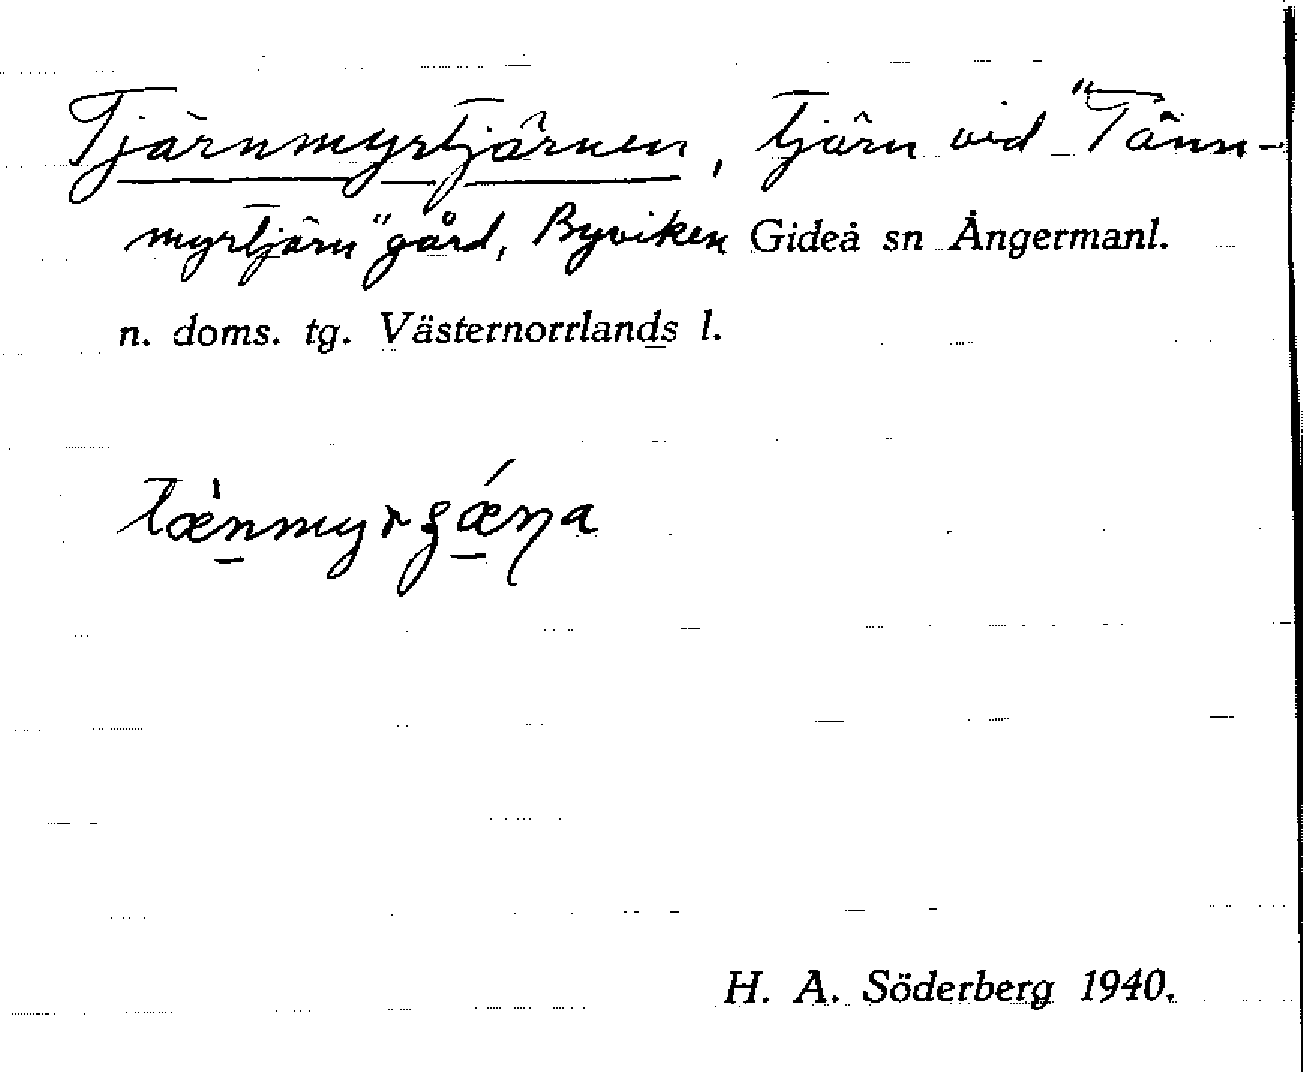 Tjärnmyrtjärnen, tjärn vid "Tänn-
myrtjärn" gård, Byviken Gideå sn Ångermanl.
n. doms. tg. Västernorrlands l.
H. A. Söderberg 1940.